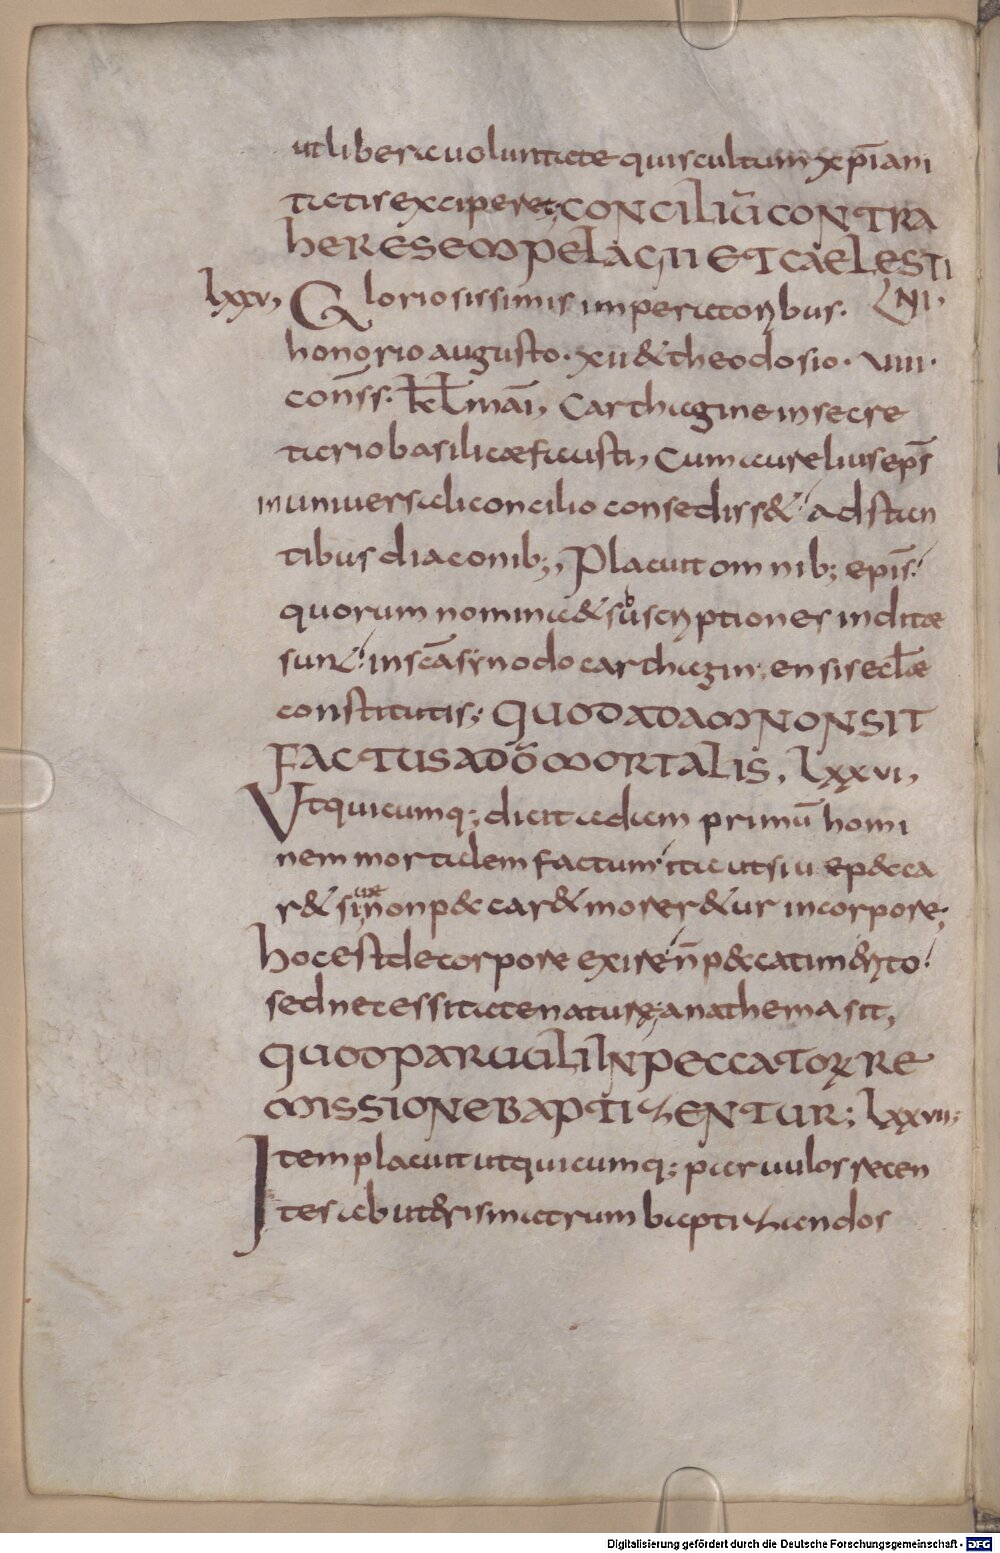 ut libera uoluntate quis cultum xp̄iani
tatis exciperet; CONCILIŪ CONTRA
HERESEM PELAGII ET CAELESTI
lxxv, Gloriosissimis imperatoribus. NI,
honorio augusto. xii & theodosio. viiii.
con̄ss. kl̄ māi, Carthagine in secre
tario basilicæ fausti, Cum aurelius ep̄s
in uniuersali concilio consediss& adstan
tibus diaconib;, Placuit omnib; ep̄is.
quorum nomina & subscriptiones inditæ
sunt. in sc̄a synodo carthaginensis eccl̄æ
constitutis; QUOD ADAM NON SIT
FACTUS A DŌ MORTALIS, lxxvi,
Ut quicumq; dicit adam primū homi
nem mortalem factum ita ut siue pecca
r& siue non peccar& morer&ur in corpore;
hoc est de corpore exire n̄ peccati merito.
sed necessitate naturę anathema sit,
QUOD PARUULI IN PECCATOR RE
MISSIONE BAPTIZENTUR; lxxvii;
Item placuit ut quicumq; paruulos recen
tes ab uteris matrum baptizandos
Digitalisierung gefördert durch die Deutsche Forschungsgemeinschaft - DFG